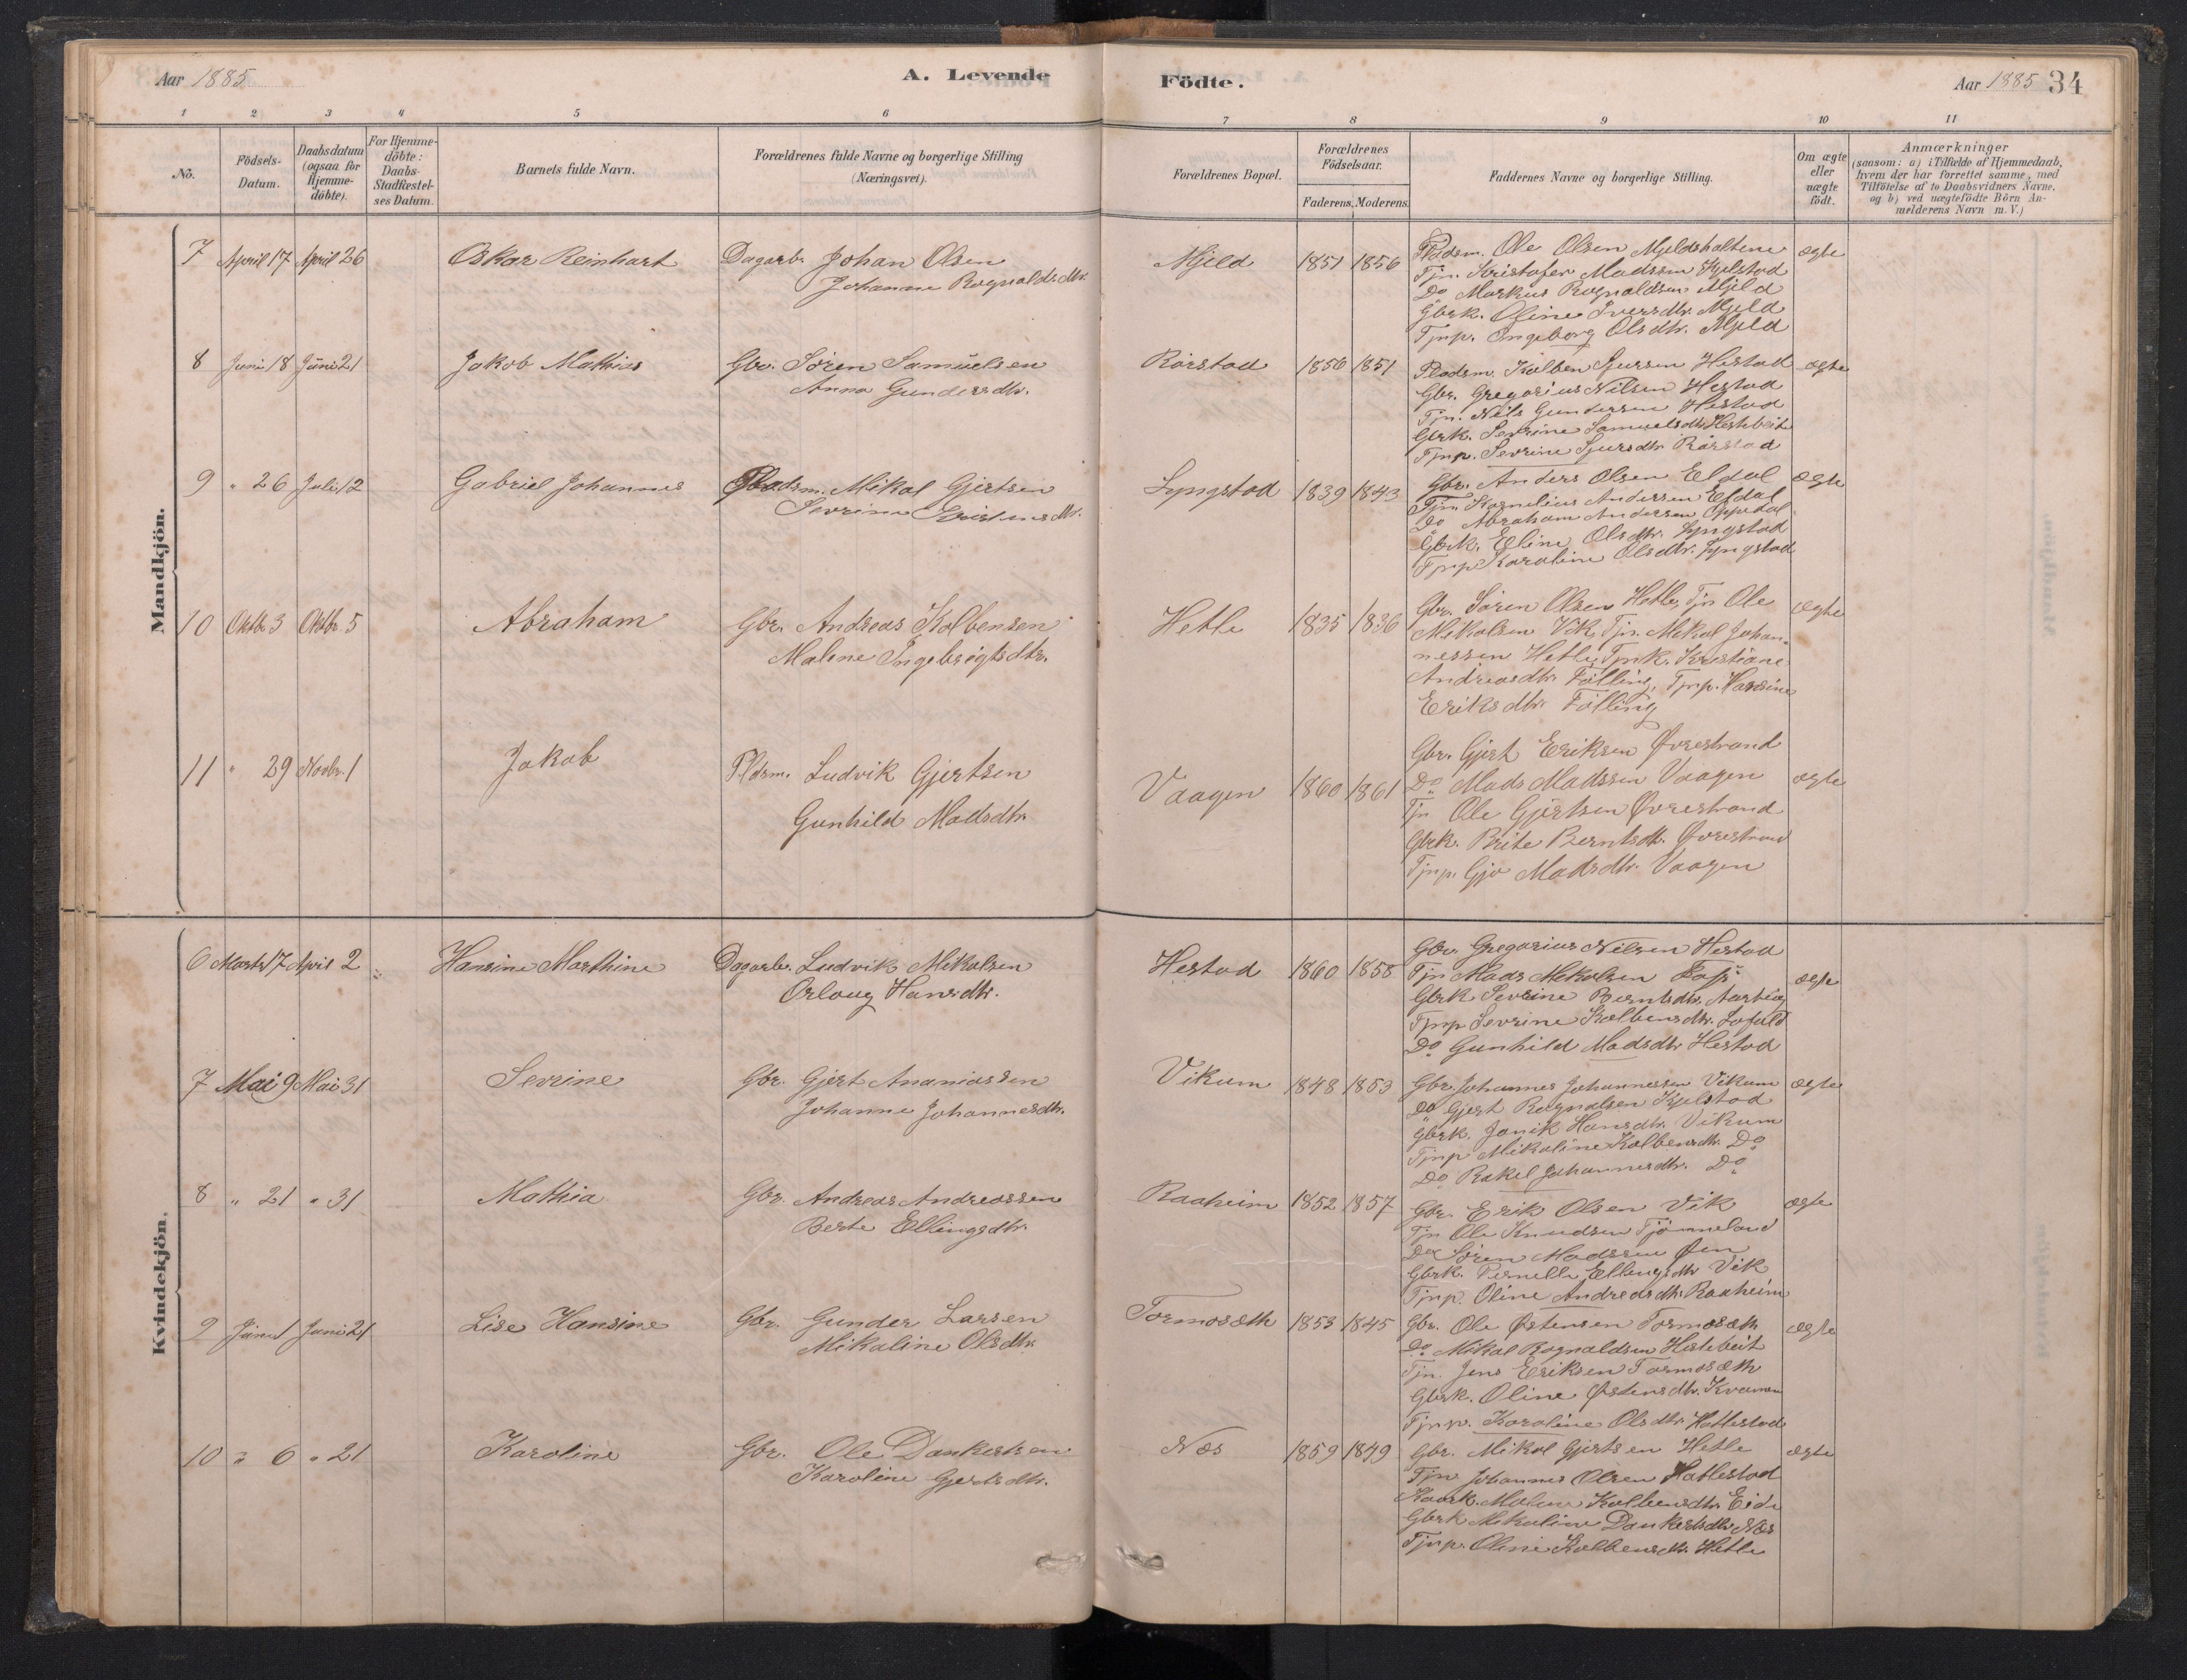 Aar 1885
A. Levende
Födte.
Aar 1885 34
1 2 3 4 5 6 7 8 9 10 11
No.
Födsels-
Datum.
Daabsdatum
(ogsaa for
Hjemme-
döbte).
For Hjemme-
döbte:
Daabs-
Stadfestel-
ses Datum.
Barnets fulde Navn.
Forældrenes fulde Navne og borgerlige Stilling
(Næringsvei).
Forældrenes Bopæl.
Forældrenes
Födselsaar.
Faderens. Moderens.
Faddernes Navne og borgerlige Stilling.
Om ægte
eller
uægte
födt.
Anmærkninger
(saasom: a) i Tilfælde af Hjemmedaab,
hvem der har forrettet samme, med
Tilföielse af to Daabsvidners Navne.
og b) ved uægtefödte Börn An-
melderens Navn m. V.)
Mandkjön.
7 April 17 April 26 Oskar Reinhart Dagarb. Johan Olsen
Johanne Rognaldsdtr.
Mjeld 1851 1856
Pladsm. Ole Olsen Mjeldsholtene ægte
Tjn. Kristofer Madssen Kjelstad
Do Markus Rognaldsen Mjeld
Gbrk. Oline Iversdtr. Mjeld
Tjnp. Ingeborg Olsdtr. Mjeld
8 Juni 8 Juni 21 Jakob Mathias Gbr. Sören Samuelsen
Anna Gundersdtr.
Rörstad 1856 1851
Pladsm. Kolben Sjursen Hestad ægte
Gbr. Gregorius Nilsen Hestad
Tjn. Nils Gundersen Hestad
Gbrk. Sevrine Samuelsdtr. Hestebeit
Tjnp. Sevrine Sjursdtr. Rörstad
9 " 26 Juli 12 Gabriel Johannes Pladsm. Mikal Gjertsen
Sevrine Kristensdtr.
Lyngstad 1839 1843
Gbr. Anders Olsen Eldal ægte
Tjn Kornelius Andersen Eldal
Do Abraham Andersen Oppedal
Gbrk. Eline Olsdtr. Lyngstad
Tjnp Karoline Olsdtr. Lyngstad
10 Oktbr. 3 Oktbr. 5 Abraham Gbr. Andreas Kolbensen
Malene Ingebrigtsdtr.
Hetle 1835 1836
Gbr. Sören Olsen Hetle, Tjn Ole ægte
Mikalsen Vik, Tjn. Mikal Johan-
nessen Hetle, Tjnk. Kristiane
Andreasdtr. Fölling, Tjnp. Hansine
Eriksdtr. Fölling
11 " 29 Novbr. 1 Jakob Pldsm. Ludvik Gjertsen
Gunhild Madsdtr.
Vaagen 1860 1861
Gbr. Gjert Eriksen Øvrestrand
Do Mads Madssen Vaagen ægte
Tjn Ole Gjertsen Øvrestrand
Gbrk. Brite Berntsdtr. Øvrestrand
Tjnp. Gjo Madsdtr. Vaagen
Kvindekjön.
6 Marts 17 April 2 Hansine Marthine Dagarb. Ludvik Mikalsen
Orloug Hansdtr.
Hestad 1860 1858
Gbr. Gregorius Nilsen Hestad
Tjn Mads Mikalsen ægte
Gbrk Sevrine Berntsdtr.
Tjnp Sevrine Kolbensdtr. Lofald
Do Gunhild Madsdtr Hestad
7 Mai 9 Mai 31 Sevrine Gbr. Gjert Ananiassen
Johanne Johannesdtr.
Vikum 1848 1853
Gbr. Johannes Johannessen Vikum ægte
Do Gjert Rognalsen Kjelstad
Gbrk. Janik Hansdtr. Vikum
Tjnp Mikaline Kolbensdtr. Do
Do Rakel Johannesdtr. Do
8 " 21 " 31 Mathia Gbr. Andreas Andreassen
Berte Ellingsdtr.
Raaheim 1852 1857
Gbr. Erik Olsen Vik ægte
Tjn Ole Knudsen Tjönneland
Do Sören Madssen Øen
Gbrk. Pernelle Ellingsdtr Vik
Tjnp. Oline Andreasdtr. Raaheim
9 Juni 1 Juni 21 Lise Hansine Gbr. Gunder Larsen
Mikaline Olsdtr.
Tormosæth 1853 1845
Gbr. Ole Østensen Tormosæth ægte
Do Mikal Rognaldsen Hestebeit
Tjn. Jens Eriksen Tormosæth
Gbrk. Oline Østensdtr. Kvamen
Tjnp. Karoline Olsdtr. Hatlestad
10 " 6 " 21 Karoline Gbr. Ole Dankertsen
Karoline Gjertsdtr.
Næs 1859 1849
Gbr. Mikal Gjertsen Hetle ægte
Tjn Johannes Olsen Hatlestad
Malene Kolbensdtr. Eide
Gbrk Mikaline Dankertsdtr. Næs
Tjnp. Oline Kolbensdtr. Hetle